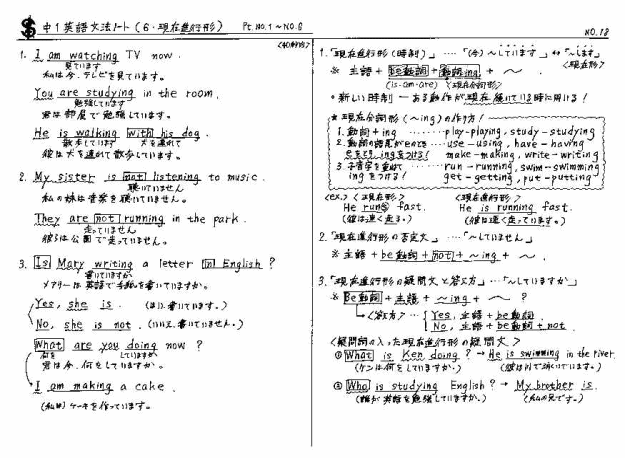 中1英語文法ノート(6・現在進行形) Pt.NO.1~NO.6
NO.18
1. I am watching TV now.
見ています
私は今、テレビを見ています。
You are studying in the room.
勉強しています
君は部屋で勉強しています。
He is walking with his dog.
散歩しています 犬を連れて
彼は犬を連れて散歩しています。
2. My sister is not listening to music.
聴いていません
私の妹は音楽を聴いていません。
They are not running in the park.
走っていません
彼らは公園で走っていません。
3. Is Mary writing a letter in English?
書いていますか
メアリーは英語で手紙を書いていますか。
Yes, she is. (はい、書いています。)
No, she is not. (いいえ、書いていません。)
What are you doing now?
何を していますか
君は今、何をしていますか。
I am making a cake.
(私は)ケーキを作っています。
1.「現在進行形(時制)」‥‥「(今)~しています」⇔「~します」
<現在形>
※ 主語+be動詞+動詞ing+~.
(is-am-are) <現在分詞形>
・新しい時制―ある動作が現在続いている時に用いる!
★現在分詞形(~ing)の作り方!
1. 動詞+ing ‥‥‥play-playing, study-studying
2. 動詞の語尾がeなので ‥‥use-using, have-having
eをとり、ingをつける! make-making, write-writing
3. 子音字を重ねて ‥‥run-running, swim-swimming
ingをつける! get-getting, put-putting
<ex.> <現在形> <現在進行形>
He runs fast. He is running fast.
(彼は速く走る。) (彼は速く走っています。)
2.「現在進行形の否定文」‥‥「~していません」
※ 主語+be動詞+not+~ing+~.
3.「現在進行形の疑問文と答え方」‥‥「~していますか」
※ Be動詞+主語+~ing+~?
<答え方>‥‥ Yes, 主語+be動詞.
No, 主語+be動詞+not.
<疑問詞の入った現在進行形の疑問文>
① What is Ken doing? → He is swimming in the river.
(ケンは何をしていますか。) (彼は川で泳いでいます。)
② Who is studying English? → My brother is.
(誰が英語を勉強していますか。) (私の兄です。)